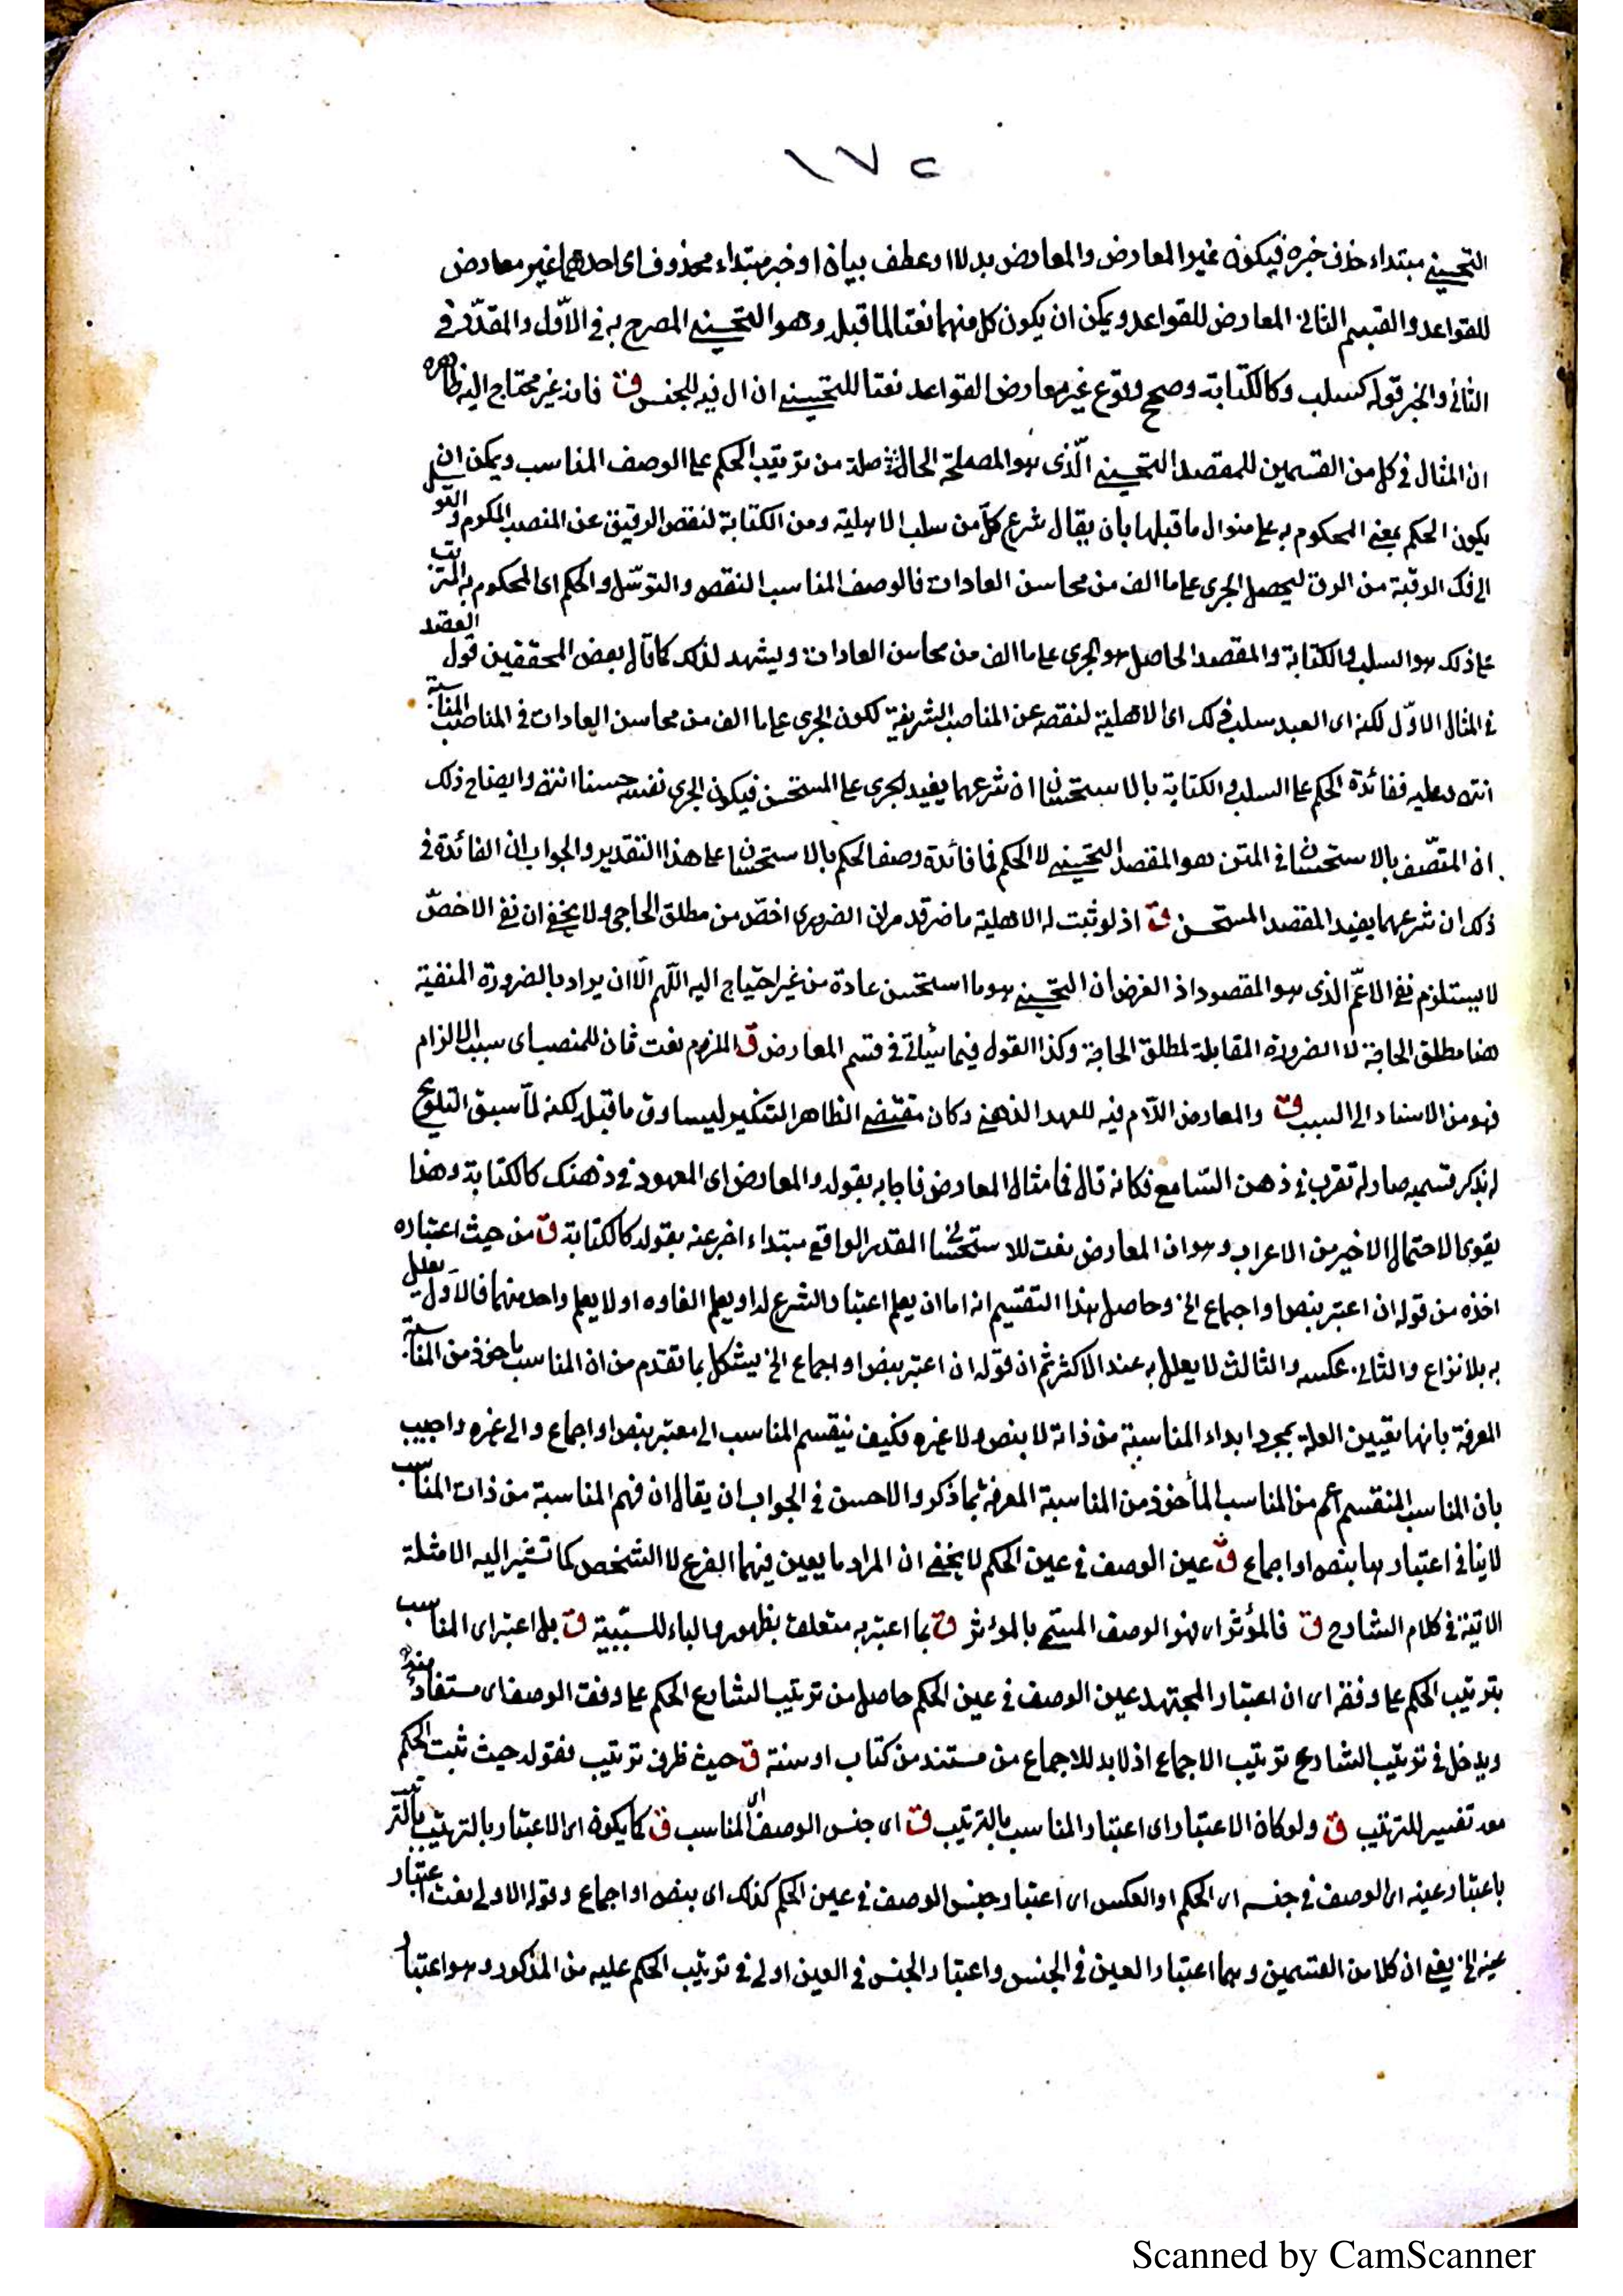 ١٧٢
التحسيني مبتداء حذف خبره فيكون غير المعارض والمعارض بدلا او عطف بيان او خبر مبتداء محذوف اى احدهما غير معارض
للقواعد والقسم الثانى المعارض للقواعد ويمكن ان يكون كل منهما نعتا لما قبله وهو التحسيني المصرح به فى الاول والمقدر فى
الثانى والخبر قوله كسلب وكالكتابة وصح وقوع غير معارض القواعد نعتا للتحسيني ان ال فيه للجنس ق فانه غير محتاج اليه ظاهره
ان المثال فى كل من القسمين للمقصد التحسيني الذى هو المصلحة الحاصلة من ترتيب الحكم على الوصف المناسب ويمكن ان
يكون الحكم بمعنى المحكوم به على منوال ما قبلها بان يقال شرع كل من سلب الاهلية ومن الكتابة لنقص الرقيق عن المنصب المكرم والتوسل
الى فك الرقبة من الرق ليحصل الجرى على ما الف من محاسن العادات فالوصف المناسب النقص والتوسل والحكم اى المحكوم به المترتب
على ذلك هو السلب والكتابة والمقصد الحاصل هو الجرى على ما الف من محاسن العادات ويشهد لذلك كما قال بعض المحققين قول العضد
فى المثال الاول لكنه اى العبد سلب ذلك اى الاهلية لنقصه عن المناصب الشريفة لكون الجرى على ما الف من محاسن العادات فى المناصب المناسبة
انته وعليه ففائدة الحكم على السلب والكتابة بالاستحسان ان شرعهما يفيد الجرى على المستحسن فيكون الجرى نفسه حسنا انته وايضاح ذلك
ان المتصف بالاستحسان فى المتن هو المقصد التحسيني لا الحكم فما فائدة وصف الحكم بالاستحسان على هذا التقدير والجواب ان الفائدة فى
ذلك ان شرعهما يفيد المقصد المستحسن ق اذ لو ثبت له الاهلية ما ضر قد مر ان الضرورى اخص من مطلق الحاجى ولا يخفى ان نفى الاخص
لا يستلزم نفى الاعم الذى هو المقصود اذ الغرض ان التحسيني هو ما استحسن عادة من غير احتياج اليه اللهم الا ان يراد بالضرورة المنفية
هنا مطلق الحاجة لا الضرورة المقابلة لمطلق الحاجة وكذا القول فيما سيأتى فى قسم المعارض ق الملزم نعت ثان للمنصب اى سبب الالزام
فهو من الاسناد الى السبب ق والمعارض اللام فيه للعهد الذهنى وكان مقتضى الظاهر التنكير ليساوق ما قبله لكنه لما سبق التلويح
له بذكر قسميه صار له تقرب فى ذهن السامع فكانه قال فما مثال المعارض فاجابه بقوله والمعارض اى المعهود فى ذهنك كالكتابة وهذا
يقوى الاحتمال الاخير من الاعراب وهو ان المعارض نعت للاستحسان المقدر الواقع مبتداء اخبر عنه بقوله كالكتابة ق من حيث اعتباره
اخذه من قوله ان اعتبر بنص او اجماع الخ وحاصل هذا التقسيم انه اما ان يعلم اعتبار الشرع له او يعلم الغاوه او لا يعلم واحد منهما فالاول يعلل
به بلا نزاع والثانى عكسه والثالث لا يعلل به عند الاكثر ثم ان قوله ان اعتبر بنص او اجماع الخ يشكل بما تقدم من ان المناسب ماخوذ من المناسبة
المعرفة بانها تعيين العلة بمجرد ابداء المناسبة من ذاته لا بنص ولا غيره فكيف ينقسم المناسب الى معتبر بنص او اجماع والى غيره واجيب
بان المناسب المنقسم اعم من المناسب المأخوذ من المناسبة المعرفة بما ذكر والاحسن فى الجواب ان يقال ان فهم المناسبة من ذات المناسب
لا ينافى اعتبارها بنص او اجماع ق عين الوصف فى عين الحكم لا يخفى ان المراد ما يعين فيهما الفرع لا الشخص كما تشير اليه الامثلة
الاتية فى كلام الشارح ق فالمؤثر اى فهو الوصف المسمى بالمؤثر ق بما اعتبر به متعلق بظهور والباء للسببية ق بل اعتبر اى المناسب
بترتيب الحكم على وفقه اى ان اعتبار المجتهد عين الوصف فى عين الحكم حاصل من ترتيب الشارع الحكم على وفق الوصف اى مستفاد منه
ويدخل فى ترتيب الشارع ترتيب الاجماع اذ لا بد للاجماع من مستند من كتاب او سنة ق حيث ظرف ترتيب فقوله حيث ثبت الحكم
معه تفسير للترتيب ق ولو كان الاعتبار اى اعتبار المناسب بالترتيب ق اى جنس الوصف اى المناسب ق كما يكون اى الاعتبار بالترتيب
باعتبار عينه اى الوصف فى جنسه اى الحكم او العكس اى اعتبار جنس الوصف فى عين الحكم كذلك اى بنص او اجماع وقوله الاولى نعت اعتبار
عينه الخ يعنى ان كلا من القسمين وهما اعتبار العين فى الجنس واعتبار الجنس فى العين اولى فى ترتيب الحكم عليه من المذكور وهو اعتبار
Scanned by CamScanner